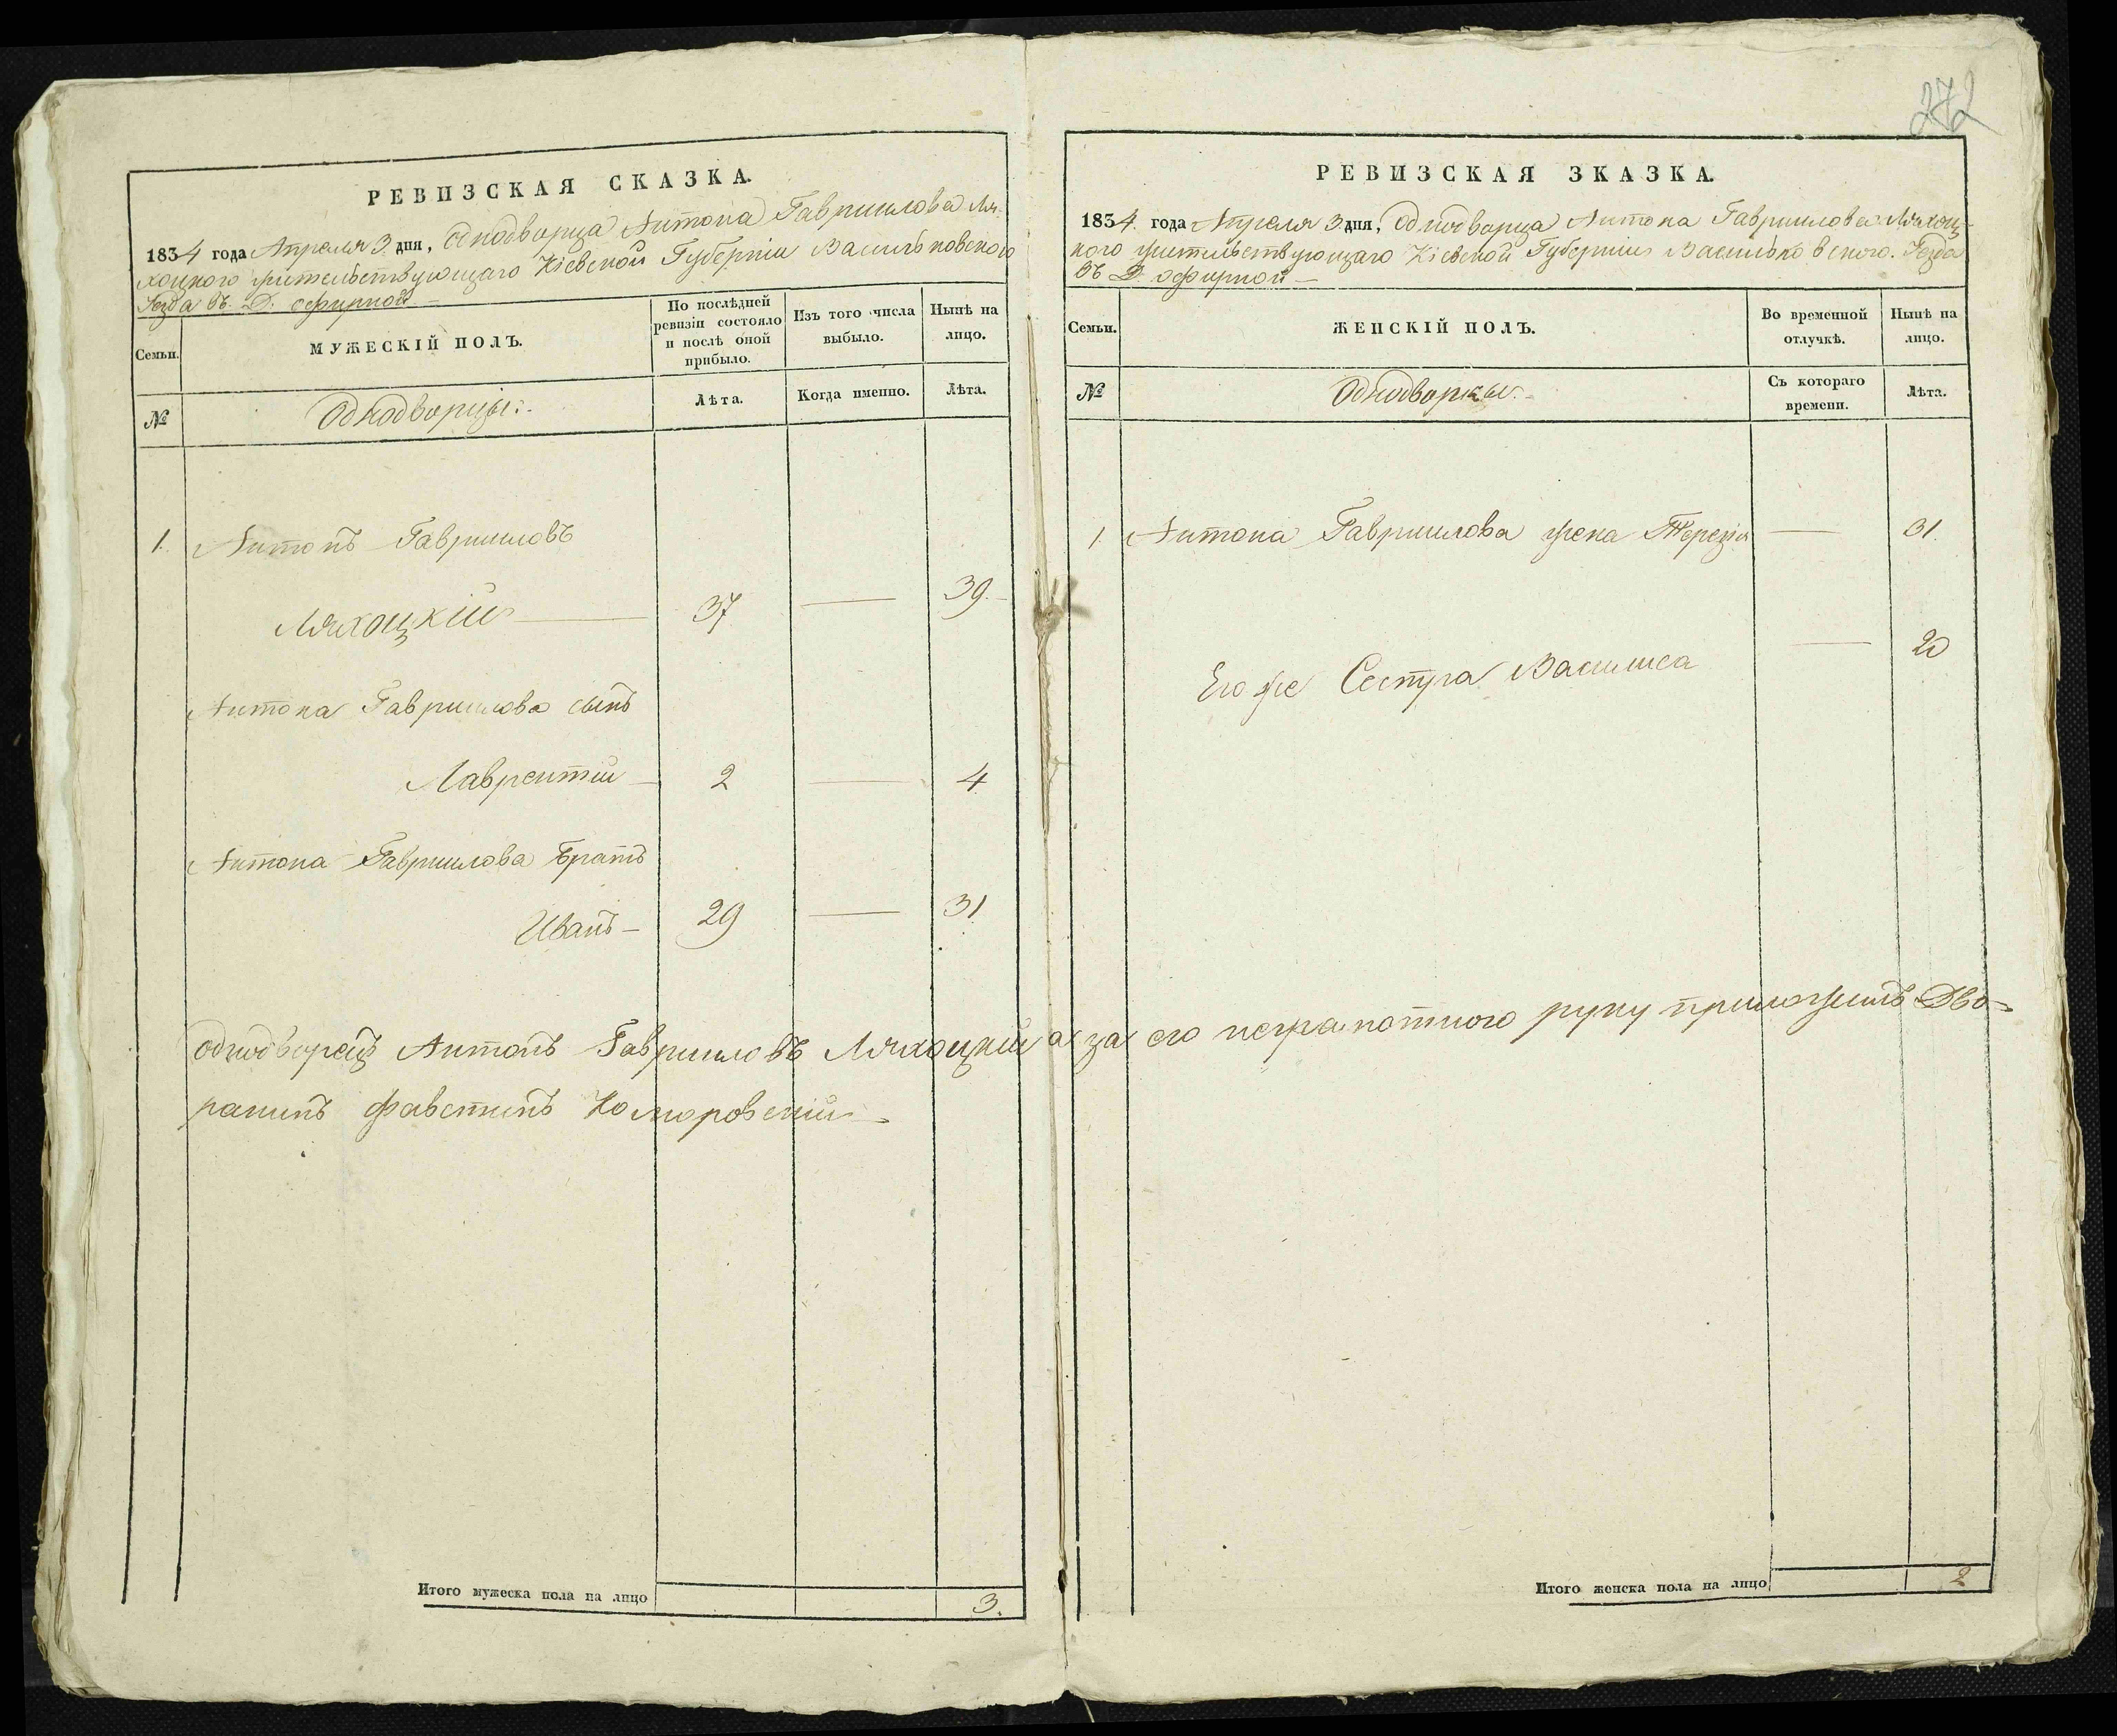 272
РЕВИЗСКАЯ СКАЗКА.
1834 года Апреля 3 дня, Однодворца Антона Гавриилова Ля-
хоцкого жительствующаго Кіевской Губерніи Васильковского
Уезда въ Д. Офирной —
Семьи.
МУЖЕСКІЙ ПОЛЪ.
По послѣдней
ревизіи состояло
и послѣ оной
прибыло.
Изъ того числа
выбыло.
Нынѣ на
лицо.
№
Однодворцы:
Лѣта.
Когда именно.
Лѣта.
1. Антонъ Гавриловъ
Ляхоцкій — 37 — 39.
Антона Гавриилова сынъ
Лаврентій — 2 — 4
Антона Гавриилова братъ
Иванъ — 29 — 31
Итого мужеска пола на лицо 3.
РЕВИЗСКАЯ ЗКАЗКА.
1834. года Апреля 3 дня, Однодворца Антона Гавриилова Ляхоц-
кого жительствующаго Кіевской Губерніи Васильковского. Уезда
въ Д. Офирной —
Семьи.
ЖЕНСКІЙ ПОЛЪ.
Во временной
отлучкѣ.
Нынѣ на
лицо.
№
Однодворкы:
Съ котораго
времени.
Лѣта.
1. Антона Гавриилова жена Терезія — 31.
Его же Сестра Василиса — 20
Однодворецъ Антонъ Гаврииловъ Ляхоцкій а за его неграмотного руку приложилъ Дво-
ранинъ Фавстинъ Коморовскій —
Итого женска пола на лицо 2